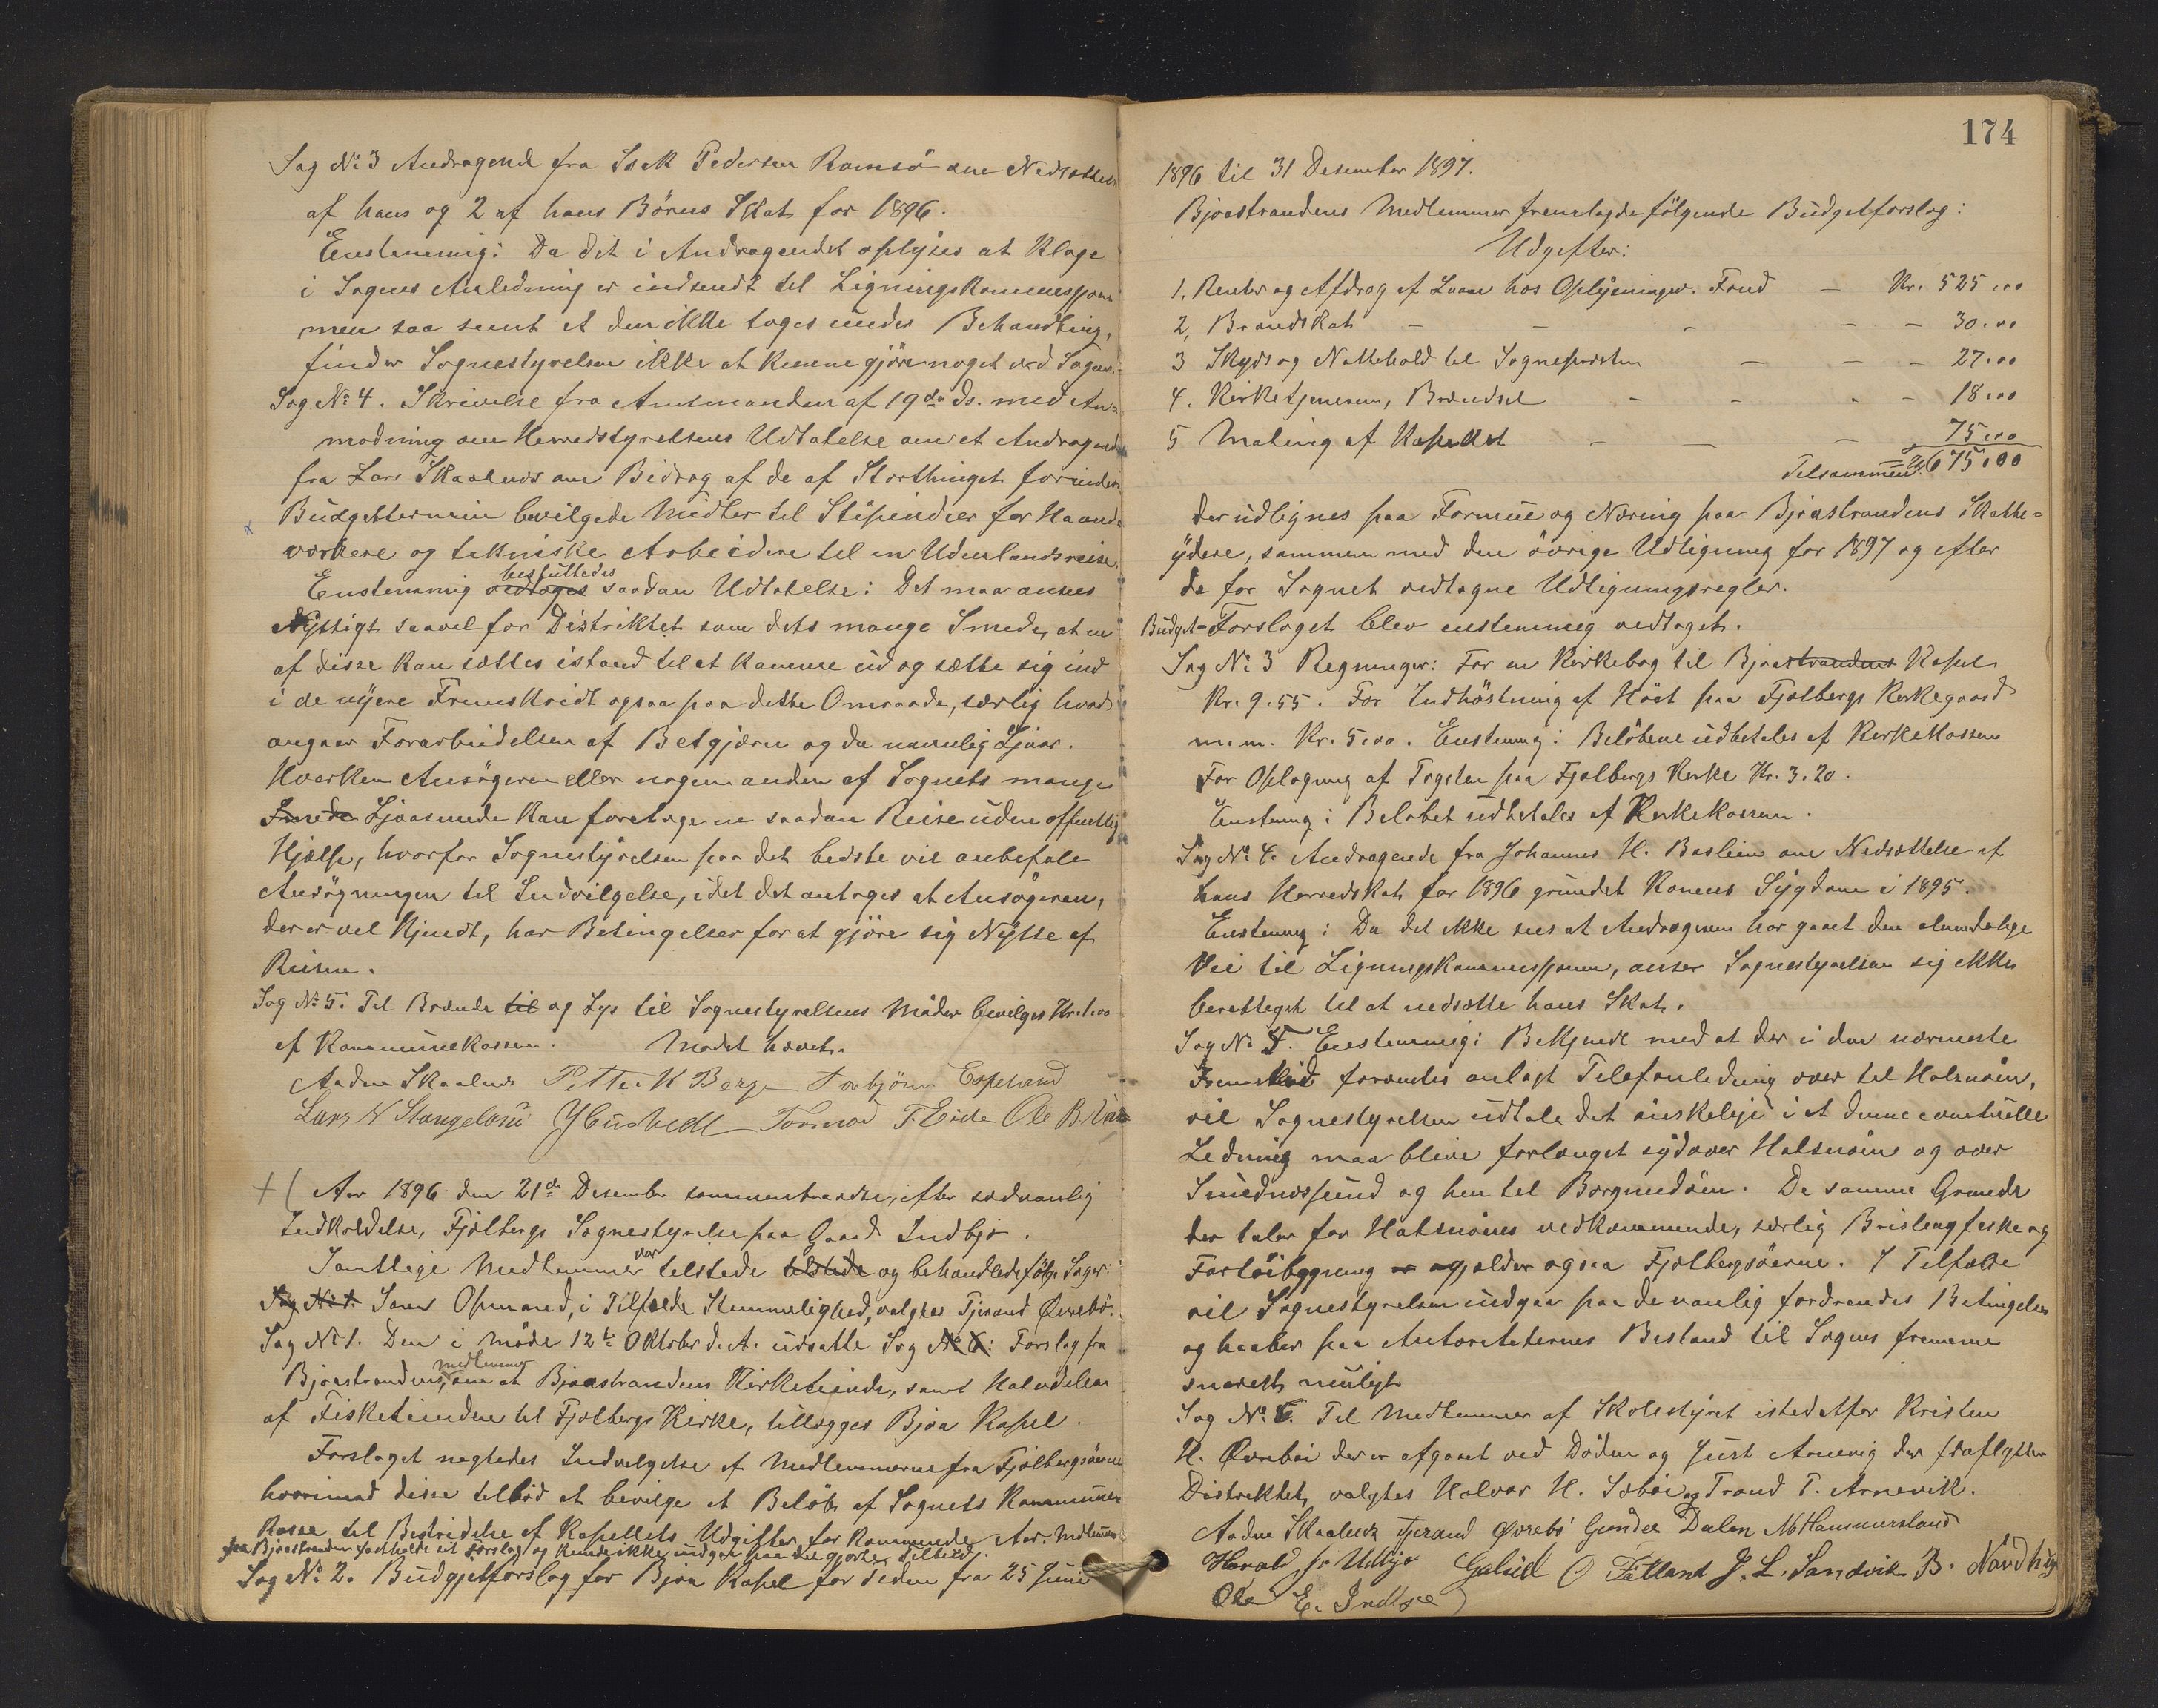 Sag No 3 Andragende fra Isak Pedersen Ramsö om Nedsættelse
af hans og 2 af hans Börns Skat for 1896.
Enstemmig: Da det i Andragendet oplyses at Klage
i Sagens Anledning er indsendt til Ligningskommissjonen
men saa sent at den ikke toges under Behandling,
finder Sognestyrelsen ikke at kunne gjöre noget ved Sagen.
Sag No 4. Skrivelse fra Amtmanden af 19de ds. med An=
modning om Herredsstyrelsens Udtalelse om et Andragende
fra Lars Skaaluer om Bidrag af de af Storthinget for inden
Budgetterminen bevilgede Midler til Stipendier for Haand-
værkere og tekniske Arbeidere til en Udenlandsreise.
Enstemmig vedtoges besluttedes saadan Udtalelse: Det maa ansees
Nyttigt saavel for Distriktet som dets mange Smede, at en
af disse kan sættes istand til at komme ud og sætte sig ind
i de nyere Fremskridt ogsaa paa dette Omraade, særlig hvad
angaar Forarbeidelsen af Betgjærn og da navnlig Ljaar.
Hverken Ansögeren eller nogen anden af Sognets mange
Smede Ljaasmede kan foretage en saadan Reise uden offentlig
Hjælp, hvorfor Sognestyrelsen paa det bedste vil anbefale
Ansögningen til Indvilgelse, idet det antages at Ansögeren,
der er vel kjendt, har Betingelser for at gjöre sig Nytte af
Reisen.
Sag No 5. Til Brænde til og Lys til Sognestyrelsens Möder bevilges Kr. 1.00
af Kommunekassen. Mödet hævet.
Aadne Skaaluer Petter K Berge Torbjörn Espeland
Lars N Stangeland Tormod T. Eide Ole B.
+ ( Aar 1896 den 21de Desember sammentraadte, efter sædvanlig
Indkaldelse, Fjelbergs Sognestyrelse paa Gaard Indbjo.
Samtlige Medlemmer var telstede telstede og behandlede følg. Sager:
Sag No 1. Som Opmand, i Tilfælde Stemmelighed, valgtes Tjerand Øvrebö.
Sag No 1. Den i Möde 12te Oktober d. A. udsatte Sag No 6: Forslag fra
Bjoastrandens medlemmer, om at Bjoastrandens Kirketiende, samt Halvdelen
af Fisketienden til Fjelbergs Kirke, tillægges Bjoa Kapel.
Forslaget negtedes Indvelgelse af Medlemmerne fra Fjelbergsöerne
hvorimod disse telböd at bevilge et Belöb af Sognets Kommune
Kasse til Bestridelse af Kapellets Udgifter for kommende Aar. Medlemmerne
fra Bjoastranden fastholdt sit Forslag og kunde ikke indgaa paa det gjorte Tilbud.
Sag No 2. Budgjetforslag for Bjoa Kapel for Tiden fra 25 Juni
174
1896 til 31 Desember 1897.
Bjoastrandens Medlemmer fremlagde fölgende Budgetforslag:
Udgifter:
1. Renter og Afdrag af Laan hos Oplysningsv. Fond — Kr. 525.00
2, Brandskat — — — — — 30.00
3 Skyds og Nattehold til Sognepresten — — — 27.00
4. Kirketjeneren, Brændsel — — — — 18.00
5 Maling af Kapellet — — — 75.00
Tilsammen: 675.00
der udlignes paa Formue og Næring paa Bjoastrandens Skatte=
ydere, sammen med den övrige Udligning for 1897 og efter
de for Sognet vedtagne Udligningsregler.
Budget-Forslaget blev enstemmig vedtaget.
Sag No 3 Regninger: For en Kirkebog til Bjoastrandens Kapel
Kr. 9.55. For Indhöstning af Höet paa Fjelbergs Kirkegaard
m.m. Kr. 5.00. Enstemmig: Belöbene udbetales af Kirkekassen
For Oplagning af Tagsten paa Fjelbergs Kirke Kr. 3.20.
Enstemmig: Belöbet udbetales af Kirkekassen.
Sag No 4. Andragende fra Johannes H. Baslien om Nedsættelse af
hans Herredskat for 1896 grundet Konens Sygdom i 1895.
Enstemmig: Da det ikke sees at Andrageren har gaaet den almindelige
Vei til Ligningskommissjonen, anser Sognestyrelsen sig ikke
berettiget til at nedsætte hans Skat.
Sag No 5. Enstemmig: Bekjendt med at der i den nærmeste
Fremtid forventes anlagt Telefonledning over til Halsnöen,
vil Sognestyrelsen udtale det önskelige i at denne eventuelle
Ledning maa blive forlænget sydover Halsnöen og over
Sundnessund og hen til Borgundöen. De samme Grunde
der taler for Halsnöens vedkommende, særlig Brislingfiske og
Fartöibygning er og gjælder ogsaa Fjelbergsöerne. I Tilfælde
vil Sognestyrelsen indgaa paa de vanlig fordrendes Betingelser
og haaber paa Autoriteternes Bistand til Sagens fremme
snarest muligt
Sag No 6. Til Medlemmer af Skolestyret istedetfor Kristen
H. Øvrebö der er afgaaet ved Döden og Just Arnevig der fraflytter
Distriktet, valgtes Halvor H. Sæböe og Trond T. Arnevik.
Aadne Skaaluer Tjerand Øvrebö Gunder Dalen N Hammersland
Harald Udbjo Galud O Fatland J. L. Sandvik B. Nordhus
Ole E. Indbjo